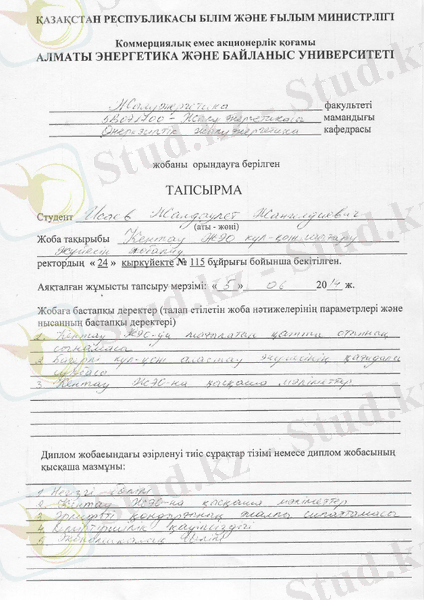 ҚАЗАҚСТАН РЕСПУБЛИКАСЫ БІЛІМ ЖӘНЕ ҒЫЛЫМ МИНИСТРЛІГІ
Коммерциялық емес акционерлік қоғамы
АЛМАТЫ ЭНЕРГЕТИКА ЖӘНЕ БАЙЛАНЫС УНИВЕРСИТЕТІ
Жылуэнергетика факультеті
5В071700 - Жылуэнергетикасы мамандығы
Өнеркәсіптік жылуэнергетика кафедрасы
жобаны орындауға берілген
ТАПСЫРМА
Студент Исаев
(аты - жөні)
Жоба тақырыбы Кентау ЖЭО күл-қож
жүйесін жобалау
ректордың « 24 » қыркүйекте № 115 бұйрығы бойынша бекітілген.
Аяқталған жұмысты тапсыру мерзімі: « 5 » 06 2014 ж.
Жобаға бастапқы деректер (талап етілетін жоба нәтижелерінің параметрлері және
нысанның бастапқы деректері)
1. Кентау ЖЭО-да қатты отынның
2. күл-қож
3. Кентау ЖЭО-на қысқаша мәліметтер
Диплом жобасындағы әзірленуі тиіс сұрақтар тізімі немесе диплом жобасының
қысқаша мазмұны:
1. Негізгі бөлім
2. Кентау ЖЭО-на қысқаша мәліметтер
3. қондырғының жалпы сипаттамасы
4. қауіпсіздігі
5. Экономикалық бөлім
Stud.kz - Stud.kz
Stud.kz - Stud.kz
Stud.kz - Stud.kz